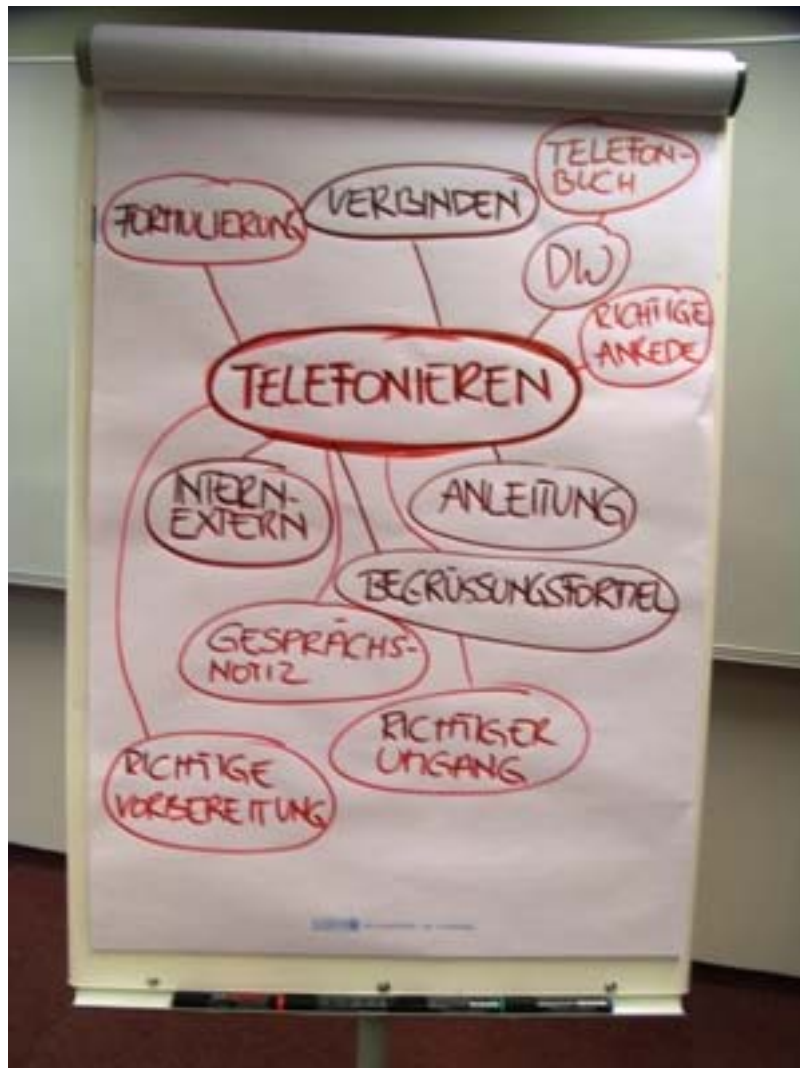 TELEFON-
BUCH
FORMULIERUNG
VERBINDEN
DW
RICHTIGE
ANREDE
TELEFONIEREN
INTERN-
EXTERN
ANLEITUNG
BEGRÜSSUNGSFORMEL
GESPRÄCHS-
NOTIZ
RICHTIGER
UMGANG
RICHTIGE
VORBEREITUNG